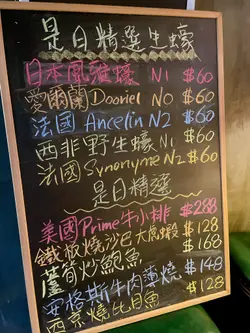 是日精選生蠔
日本風雅蠔 N1 $60
愛爾蘭 Dooriel N0 $60
法國 Ancelin N2 $60
西非野生蠔 N1 $60
法國 Synonyme N2 $60
是日精選
美國Prime牛小排 $288
鐵板燒沙巴大虎蝦 $128
蘆筍炒鮑魚 $168
安格斯牛肉薄燒 $148
西京燒比目魚 $128